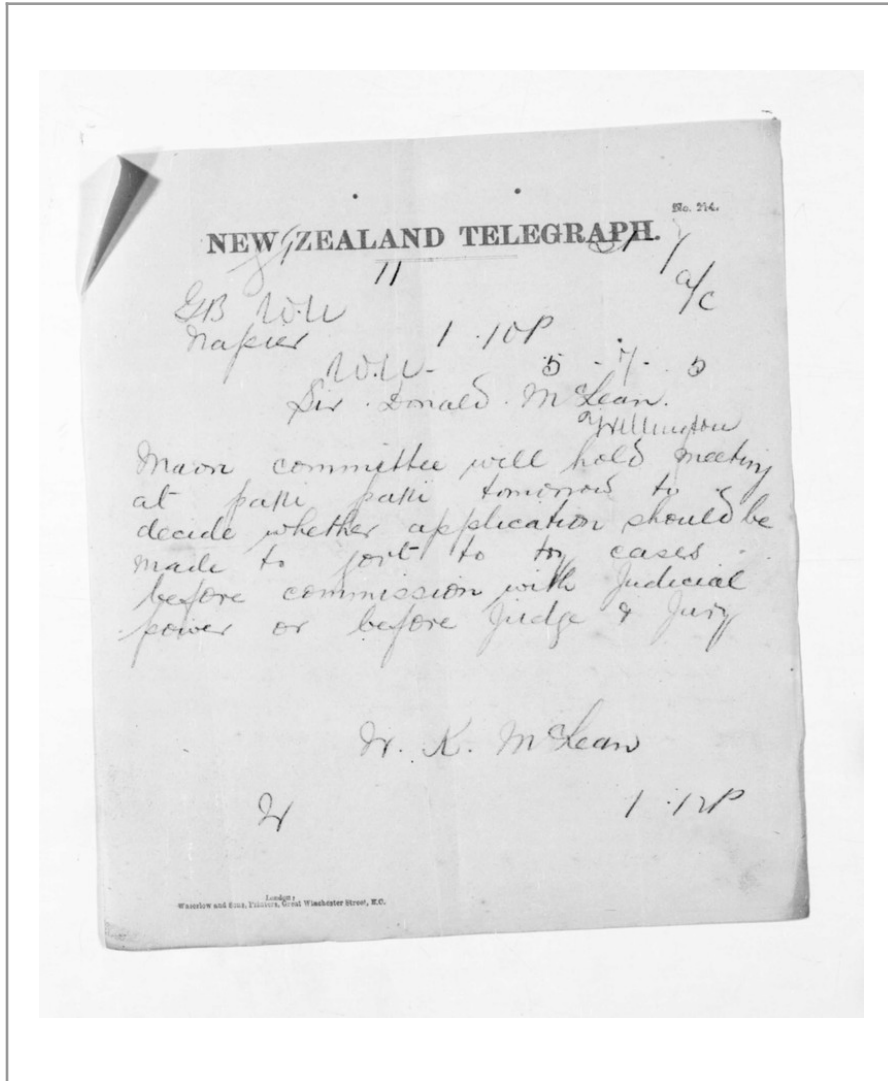 No. 214.
NEW ZEALAND TELEGRAPH.
11
a/c
GB W.U
Napier 1.10P
W.U- 5.7.5
Sir Donald McLean
Wellington
Maori committee will hold meeting
at paki paki tomorrow to
decide whether application should be
made to govt to try cases
before commission with Judicial
power or before Judge & Jury
K. McLean
1.12P
London:
Waterlow and Sons, Printers, Great Winchester Street, E.C.